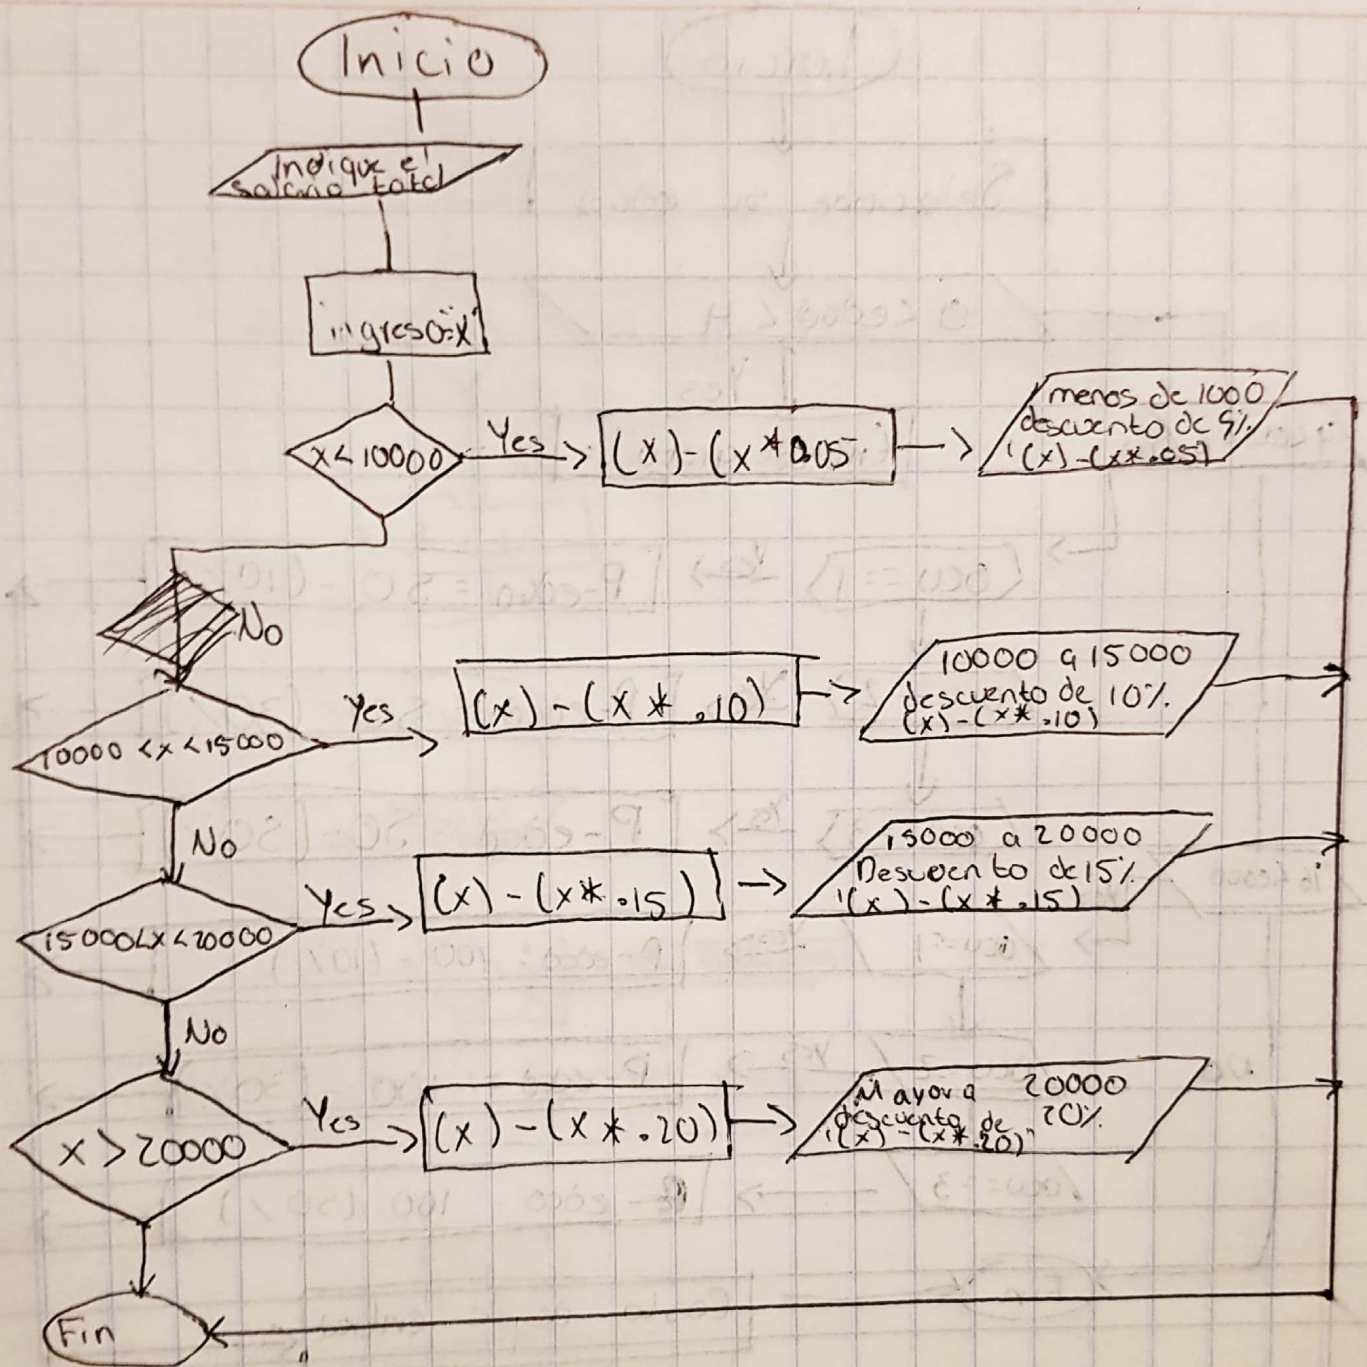 Inicio
Indique el
salario total
ingreso="x"
x < 10000
Yes
(x)-(x*0.05
menos de 1000
descuento de 5%
'(x)-(x*.05)
No
10000 <x <15000
Yes
(x) - (x * .10)
10000 a 15000
descuento de 10%
(x)-(x*.10)
No
15000<x<20000
Yes
(x) - (x*.15)
15000 a 20000
Descuento de 15%
'(x) - (x*.15)
No
x > 20000
Yes
(x) - (x * .20)
Mayor a 20000
descuento de 20%
'(x) - (x*.20)"
Fin